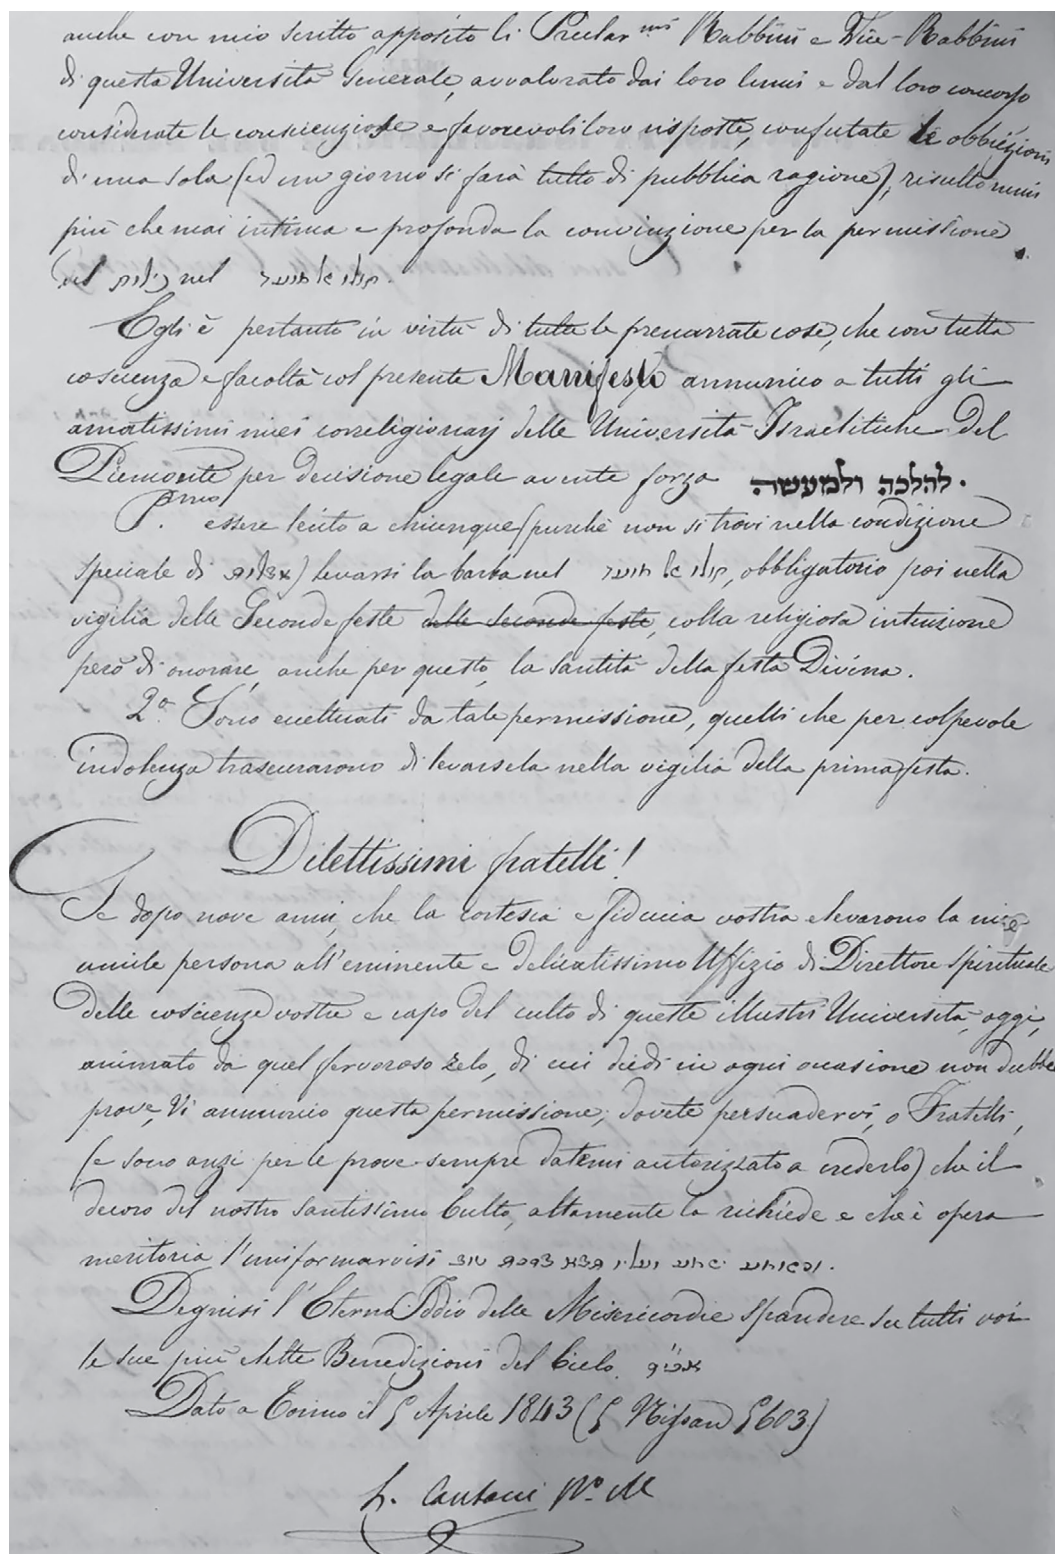 anche con mio scritto apposito li Preclar.mi Rabbini e Vice-Rabbini
di questa Università Generale, avvalorato dai loro lumi e dal loro concorso
considerate le conscienziose e favorevoli loro risposte, confutate le obbiezioni
di una sola (ed un giorno si farà tutto di pubblica ragione), risultommi
più che mai intima e profonda la convinzione per la permissione
nel גילוח nel חולו של מועד.
Egli è pertanto in virtù di tutte le prenarrate cose, che con tutta
coscienza e facoltà col presente Manifesto annunico a tutti gli
amatissimi miei correligionarj delle Università Israelitiche del
Piemonte per decisione legale avente forza להלכה ולמעשה.
P.mo essere lecito a chiunque (purchè non si trovi nella condizione
speciale di אבלות) levarsi la barba nel חולו של מועד, obbligatorio poi nella
vigilia delle Seconde feste delle seconde feste, colla religiosa intenzione
però di onorare, anche per questo, la santità della festa Divina.
2.o Sono eccettuati da tale permissione, quelli che per colpevole
indolenza trascurarono di levarsela nella vigilia della prima festa.
Dilettissimi fratelli!
Se dopo nove anni, che la cortesia e fiducia vostra elevarono la mia
umile persona all'eminente e delicatissimo Uffizio di Direttore Spirituale
delle coscienze vostre e capo del culto di queste illustri Università, oggi,
animato da quel fervoroso zelo, di cui diedi in ogni occasione non dubbe
prove, Vi annunico questa permissione; dovete persuadervi, o Fratelli,
(e sono anzi per le prove sempre datemi autorizzato a crederlo) che il
decoro del nostro santissimo Culto, altamente la richiede e che è opera
meritoria l'uniformarvisi ועליו תבא ברכת טוב.
Degnisi l'Eterno Iddio delle Misericordie spandere su tutti voi
le sue più elette Benedizioni del Cielo.
Dato a Torino il 5 Aprile 1843 (5 Nissan 5603)
Cantoni